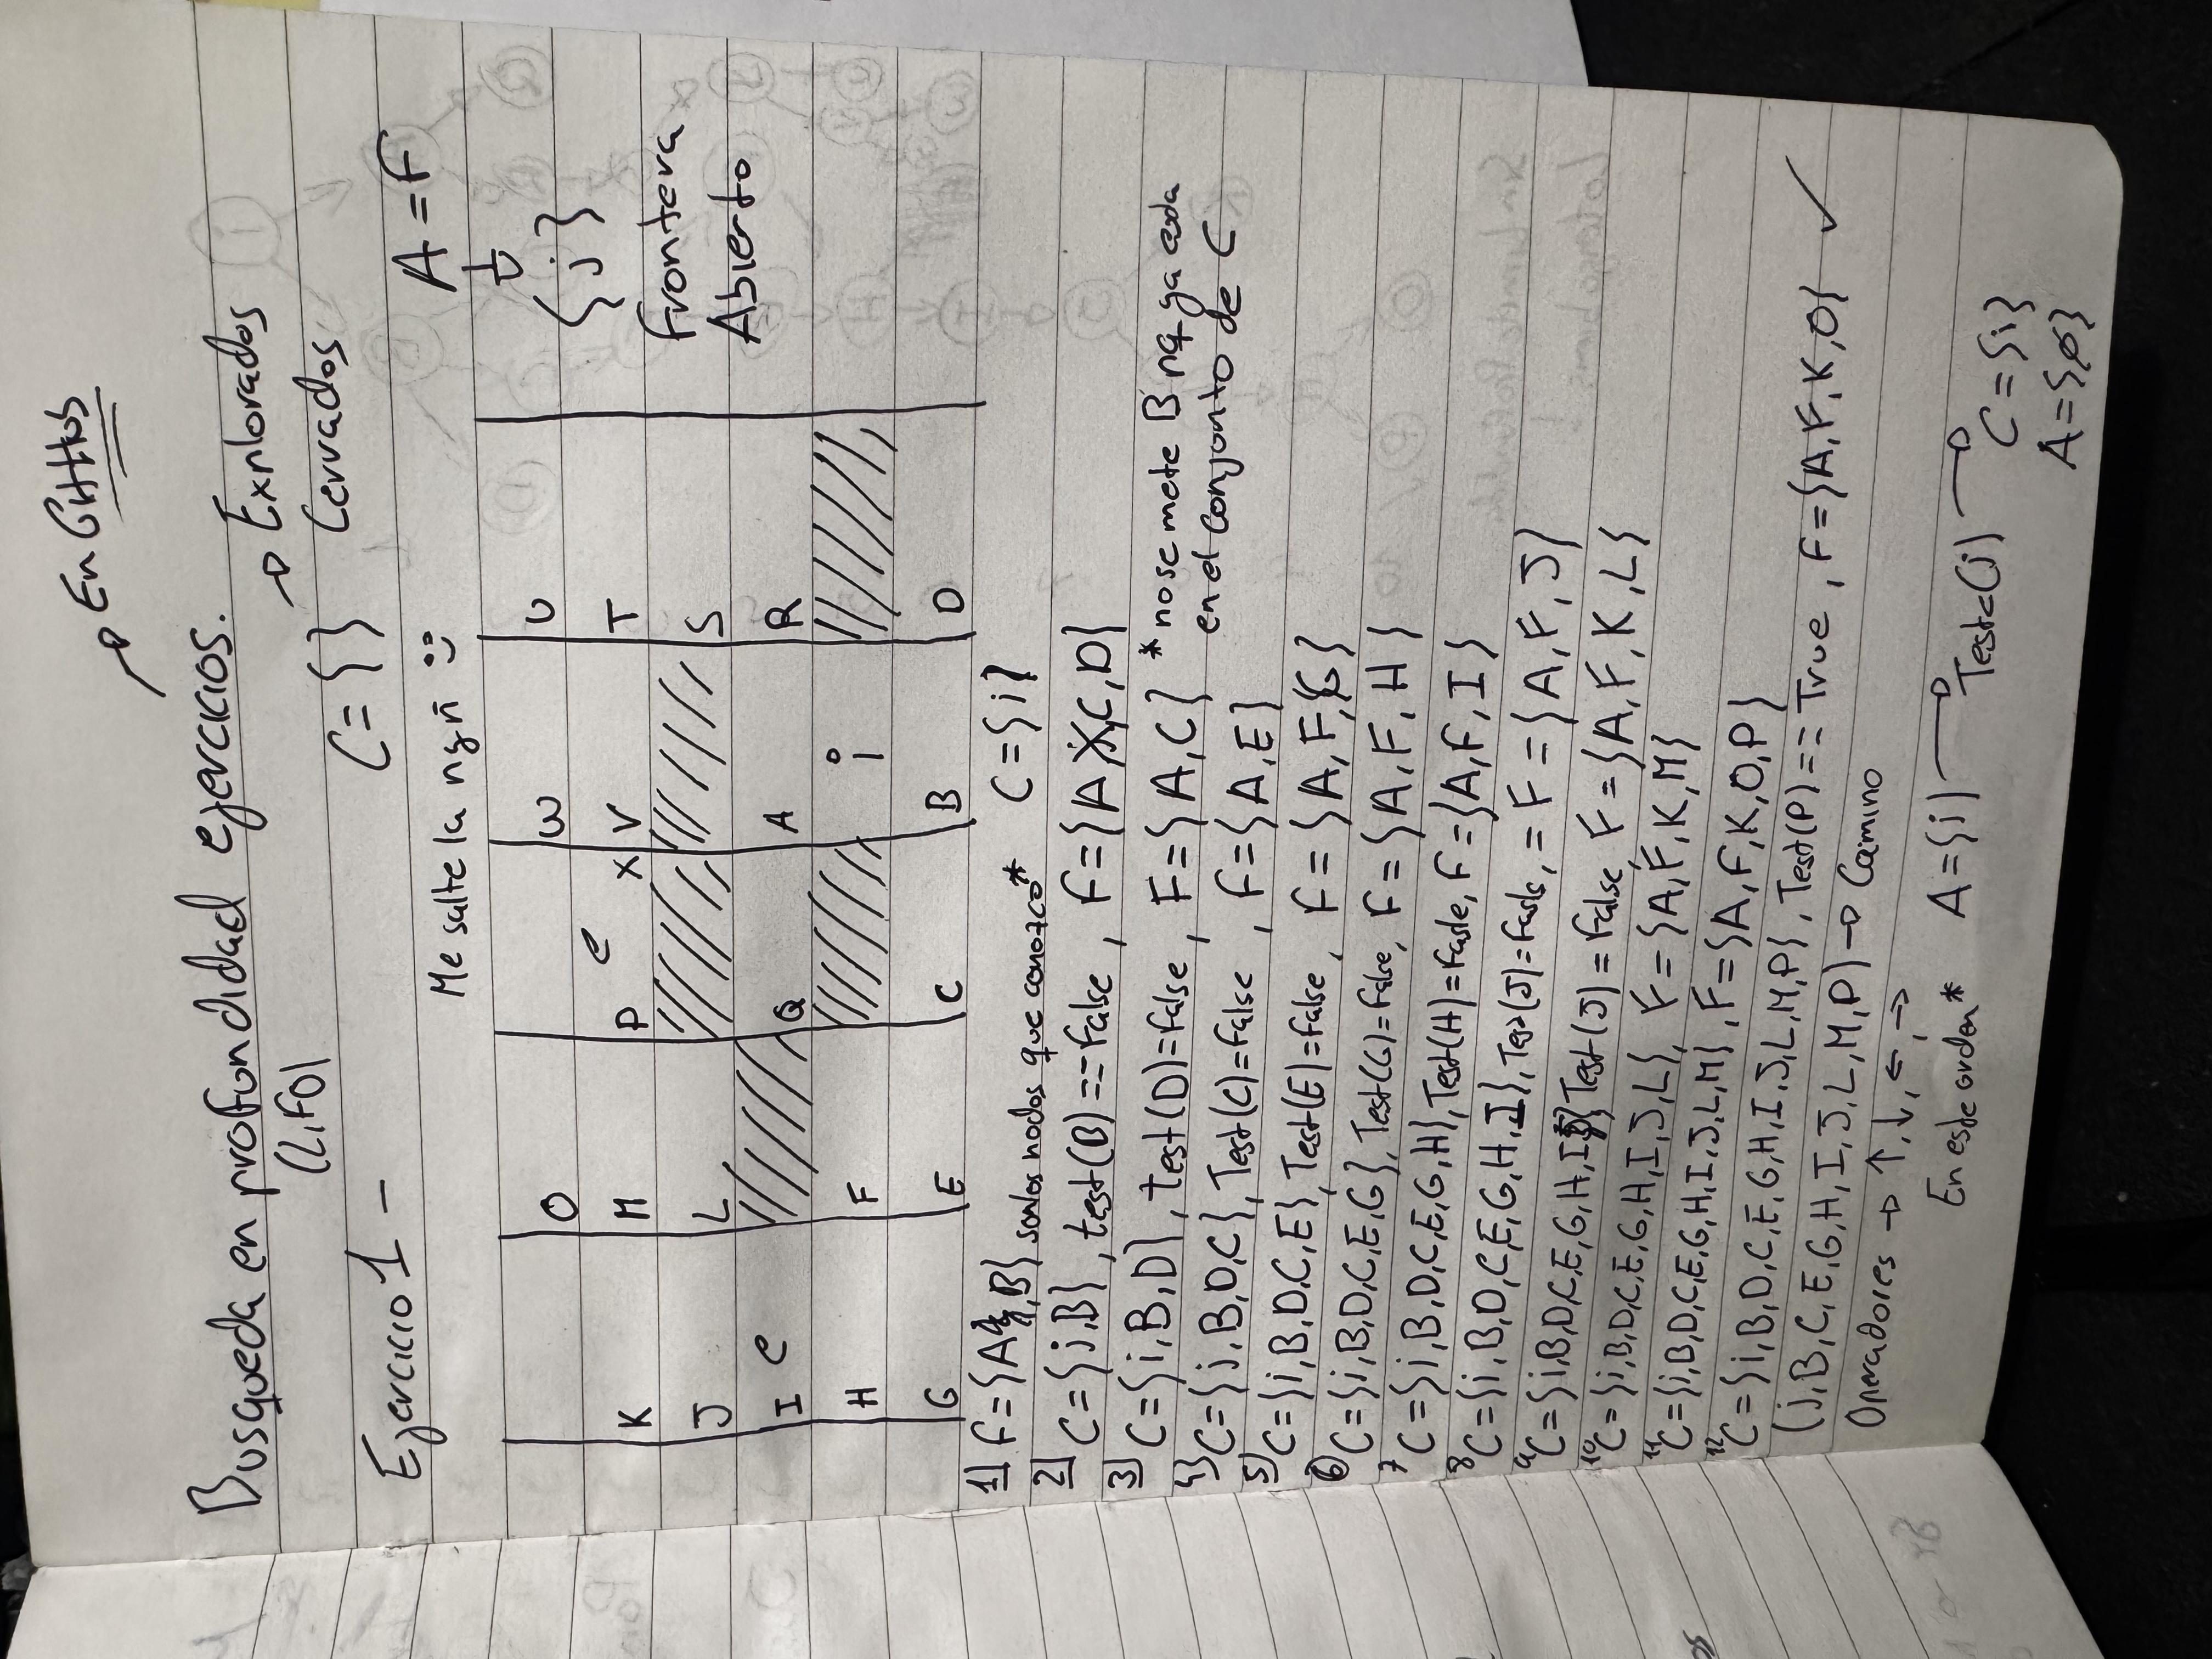 En GitHub
Busqueda en profundidad ejercicios.
(LIFO)
C={} Explorados
Cerrados
Ejercicio 1 -
A = F
Me salte la n y ñ
{i}
Frontera
Abierto
O W U
K M P e X V T
J L S
I e Q A R
H F i
G E C B D
1) F={A, B} son los nodos que conozco* C={i}
2) C={i,B}, test(B)==False, F={A,C,D}
3) C={i,B,D}, test(D)=False, F={A,C} *no se mete B pq ya esta
en el conjunto de C
4) C={i,B,D,C}, Test(C)=False, F={A,E}
5) C={i,B,D,C,E}, Test(E)=False, F={A,F,G}
6) C={i,B,D,C,E,G}, Test(G)=False, F={A,F,H}
7 C={i,B,D,C,E,G,H}, Test(H)=Fasle, F={A,F,I}
8 C={i,B,D,C,E,G,H,I}, Test(J)=Fasle, = F={A,F,J}
9 C={i,B,D,C,E,G,H,I,J} Test(J)=False, F={A,F,K,L}
10 C={i,B,D,C,E,G,H,I,J,L}, F={A,F,K,M}
11 C={i,B,D,C,E,G,H,I,J,L,M}, F={A,F,K,O,P}
12 C={i,B,D,C,E,G,H,I,J,L,M,P}, Test(P)==True, F={A,F,K,O} ✓
(i,B,C,E,G,H,I,J,L,M,P) → Camino
Operadores → ↑,↓,←,→
En este orden* A={i} → Teste(i) → C={i}
A={∅}